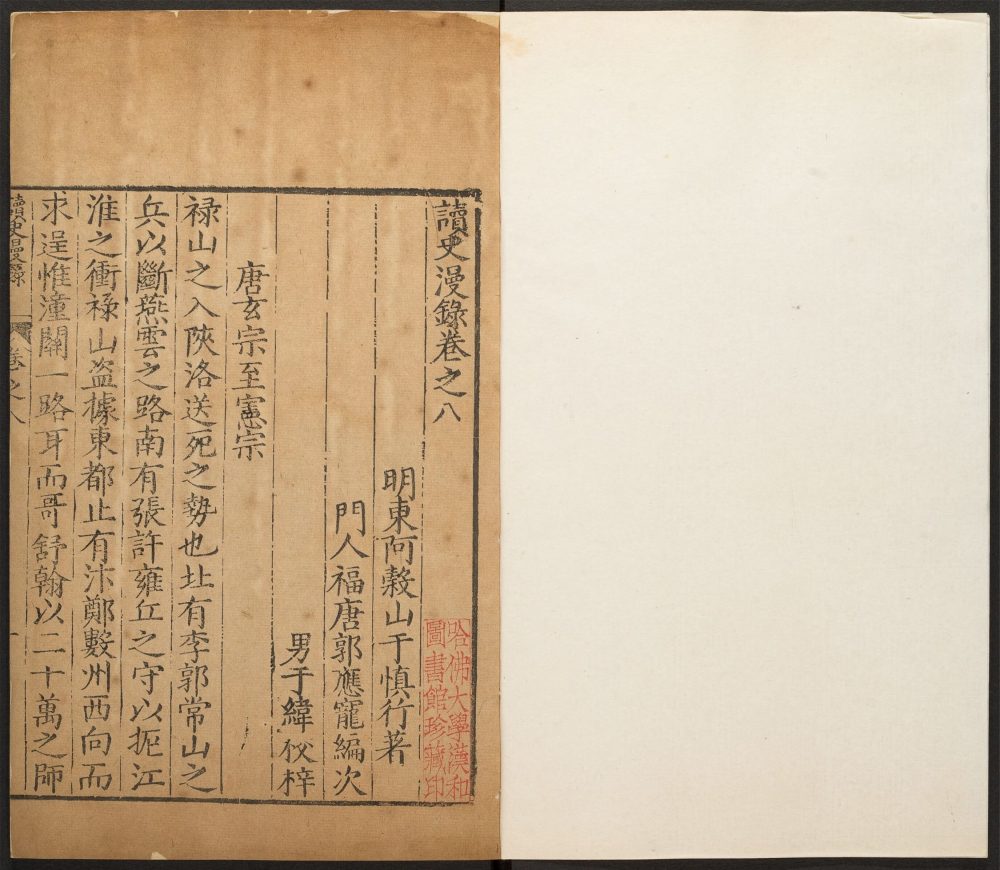 讀史漫錄卷之八
明東阿穀山于慎行著
門人福唐郭應寵編次
男于緯校梓
唐玄宗至憲宗
禄山之入陝洛送死之勢也北有李郭常山之
兵以斷燕雲之路南有張許雍丘之守以扼江
淮之衝禄山盗據東都止有汴鄭數州西向而
求逞惟潼關一路耳而哥舒翰以二十萬之師
讀史漫錄
卷之八
一
哈佛大學漢和
圖書館珍藏印